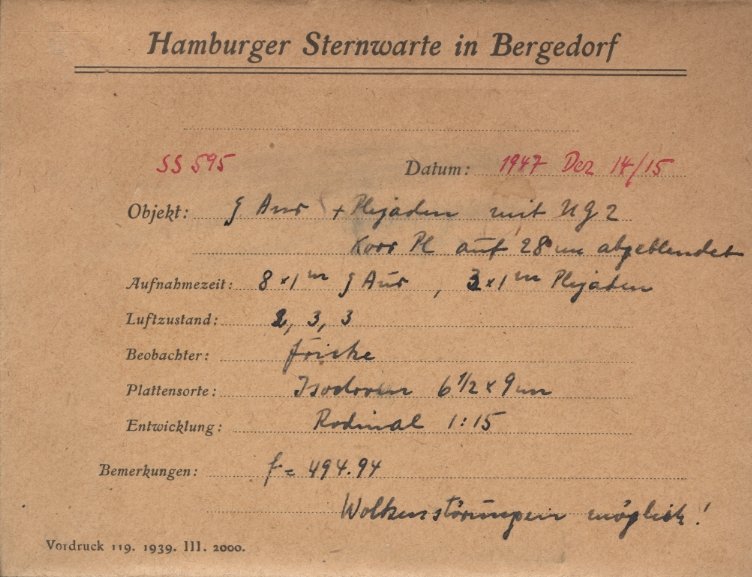 Hamburger Sternwarte in Bergedorf
SS 595 Datum: 1947 Dez 14/15
Objekt: ζ Aur + Plejaden mit UG2
Korr Pl auf 28 cm abgeblendet
Aufnahmezeit: 8 × 1ᵐ ζ Aur, 3 × 1ᵐ Plejaden
Luftzustand: 2, 3, 3
Beobachter: Fricke
Plattensorte: 6 1/2 × 9 cm
Entwicklung: Rodinal 1:15
Bemerkungen: f = 494.94
Wolkenstörungen möglich!
Vordruck 119. 1939. III. 2000.